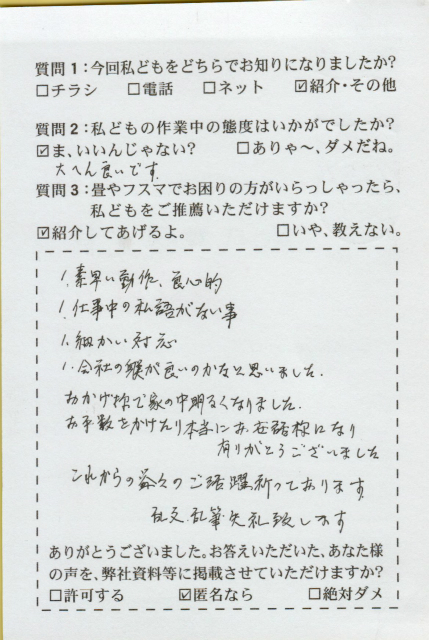 質問1：今回私どもをどちらでお知りになりましたか?
□チラシ □電話 □ネット ☑紹介・その他
質問2：私どもの作業中の態度はいかがでしたか?
☑ま、いいんじゃない? □ありゃ〜、ダメだね。
大へん良いです
質問3：畳やフスマでお困りの方がいらっしゃったら、
私どもをご推薦いただけますか?
☑紹介してあげるよ。 □いや、教えない。
1. 素早い動作、良心的
1. 仕事中の私語がない事
1. 細かい対応
1. 会社の躾が良いのかなと思いました.
おかげ様で家の中明るくなりました.
お手数をかけたり本当にお世話様になり
有りがとうございました
これからの益々のご活躍祈っております
乱文乱筆失礼致します
ありがとうございました。お答えいただいた、あなた様
の声を、弊社資料等に掲載させていただけますか?
□許可する ☑匿名なら □絶対ダメ